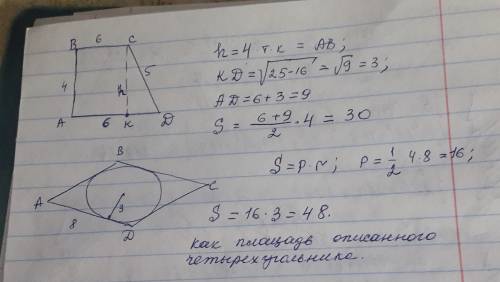 B 6 C
4 h 5
A 6 K D
h = 4 т.к = AB;
KD = √25-16 = √9 = 3;
AD = 6+3 = 9
S = (6+9)/2 · 4 = 30
B
A C
8 D
S = p·r; P = 1/2 4·8 = 16;
S = 16·3 = 48.
как площадь описанного
четырехугольника.